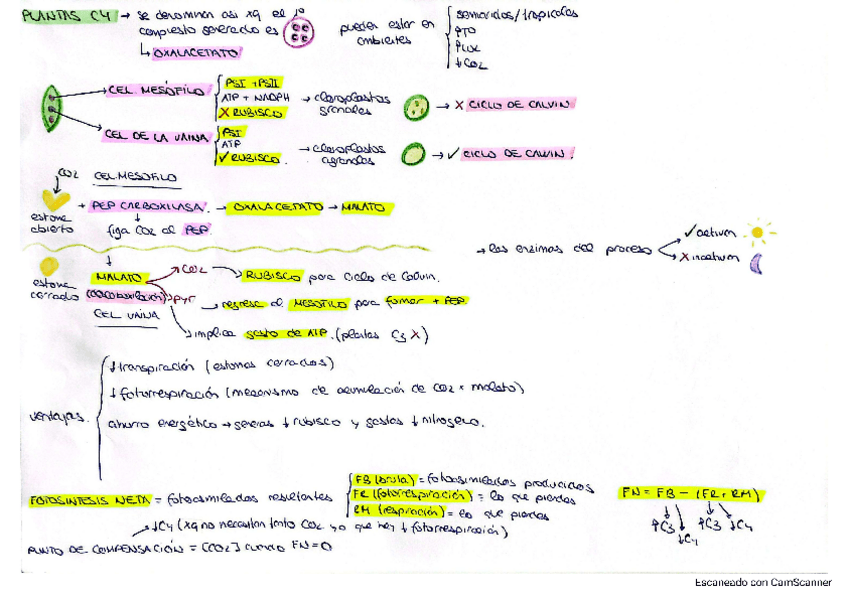 PLANTAS C4 → se denominan así xq el 1º
compuesto generado es
↳ OXALACETATO
pueden estar en
ambientes
semiáridos/tropicales
↑Tº
↑LUX
↓CO2
CEL. MESÓFILO
PSI + PSII
ATP + NADPH
X RUBISCO
→ cloroplastos
granales
→ X CICLO DE CALVIN
CEL DE LA VAINA
PSI
ATP
✓ RUBISCO
→ cloroplastos
agranales
→ ✓ CICLO DE CALVIN.
CO2 CEL MESOFILO
+ PEP CARBOXILASA. → OXALACETATO → MALATO
estoma
abierto
fija CO2 al PEP
→ las enzimas del proceso
✓ activan
X inactivan
estoma
cerrado
MALATO
(descarboxilación)
CEL VAINA
CO2 → RUBISCO para ciclo de Calvin.
PYR → regresa al MESOFILO para formar + PEP.
→ implica gasto de ATP. (plantas C3 X)
ventajas.
↓transpiración (estomas cerrados)
↓fotorrespiración (mecanismo de acumulación de CO2 x malato)
ahorro energético → generas ↓rubisco y gastas ↓nitrógeno.
FOTOSINTESIS NETA = fotoasimilados resultantes
FB (bruta) = fotoasimilados producidos
FR (fotorrespiración) = lo que pierdes
RM (respiración) = lo que pierdes
FN = FB - (FR + RM)
↑C3 ↓C4 ↑C3 ↓C4
→ ↓C4 (xq no necesitan tanto CO2 ya que hay ↓ fotorrespiración)
PUNTO DE COMPENSACIÓN = [CO2] cuando FN=0
Escaneado con CamScanner